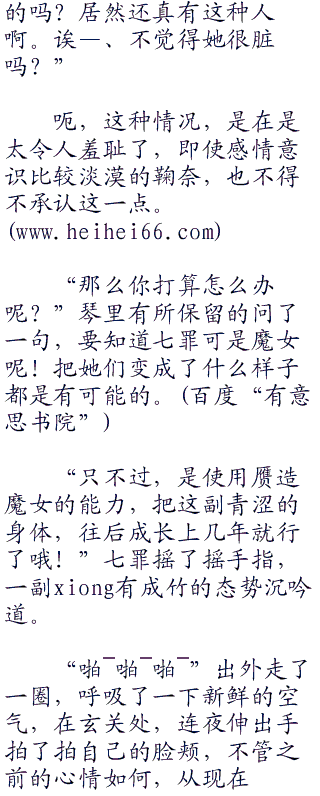 的吗？居然还真有这种人
啊。诶—、不觉得她很脏
吗？”
呃，这种情况，是在是
太令人羞耻了，即使感情意
识比较淡漠的鞠奈，也不得
不承认这一点。
(www.heihei66.com)
“那么你打算怎么办
呢？”琴里有所保留的问了
一句，要知道七罪可是魔女
呢！把她们变成了什么样子
都是有可能的。(百度“有意
思书院”)
“只不过，是使用赝造
魔女的能力，把这副青涩的
身体，往后成长上几年就行
了哦！”七罪摇了摇手指，
一副xiong有成竹的态势沉吟
道。
“啪¯啪¯啪¯”出外走了
一圈，呼吸了一下新鲜的空
气，在玄关处，连夜伸出手
拍了拍自己的脸颊，不管之
前的心情如何，从现在